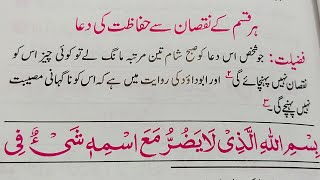 ہر قسم کے نقصان سے حفاظت کی دعا
فضیلت: جو شخص اس دعا کو صبح شام تین مرتبہ مانگ لے تو کوئی چیز اس کو
نقصان نہیں پہنچائے گی۲ اور ابوداؤد کی روایت میں ہے کہ اس کو ناگہانی مصیبت
نہیں پہنچے گی۔۳
بِسْمِ اللهِ الَّذِىْ لَا يَضُرُّ مَعَ اسْمِهٖ شَىْءٌ فِى